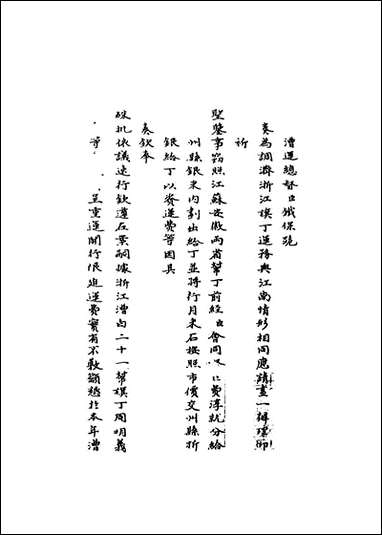 漕運總督臣鐵保跪
奏為調濟浙江旗丁運務與江南情形相同應請畫一辦理仰
祈
聖鑒事竊照江蘇安徽兩省幫丁前經臣會同 費淳就分給
州縣銀米內劃出給丁並將行月米石按照市價交州縣折
銀給丁以資運費等因具
奏欽奉
硃批依議速行欽遵在案嗣據浙江漕白二十一幫旗丁周明義
等 呈重運開行 運費實有不敷籲懇於本年漕